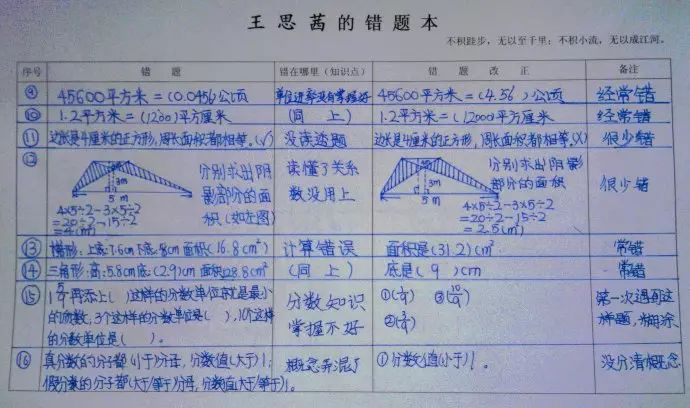 王思茜的错题本
不积跬步，无以至千里；不积小流，无以成江河。
序号 错 题 错在哪里（知识点） 错 题 改 正 备注
⑨ 45600平方米=(0.0456)公顷 单位进率没有掌握好 45600平方米=(4.56)公顷 经常错
⑩ 1.2平方米=(1200)平方厘米 (同上) 1.2平方米=(12000)平方厘米 经常错
⑪ 边长是4厘米的正方形,周长面积都相等。(√) 没读透题 边长是4厘米的正方形,周长面积都相等。(×) 很少错
⑫ 3m 5m 分别求出阴影部分的面积(如左图) 读懂了关系数没用上 3m 5m 分别求出阴影部分的面积 很少错
4×5÷2-3×5÷2
=20÷2-15÷2
=4(m²)
4×5÷2-3×5÷2
=20÷2-15÷2
=2.5(m²)
⑬ 梯形:上底:7.6cm下底:8cm 面积(16.8cm²) 计算错误 面积是(31.2)cm² 常错
⑭ 三角形:高:5.8cm底:(2.9)cm 面积28.8cm² (同上) 底是(9)cm 常错
⑮ 再添上( )这样的分数单位就是最小
的质数,3个这样的分数单位是( ),10个这样
的分数单位是( )。
分数知识
掌握不好
第一次遇到这
样题,糊涂
⑯ 真分数的分子都(小于)分母,分数值(大于)1; 概念弄混了 ①分数值(小于)1。 没分清概念
假分数的分子都(大于/等于)分母,分数值(大于/等于)1。